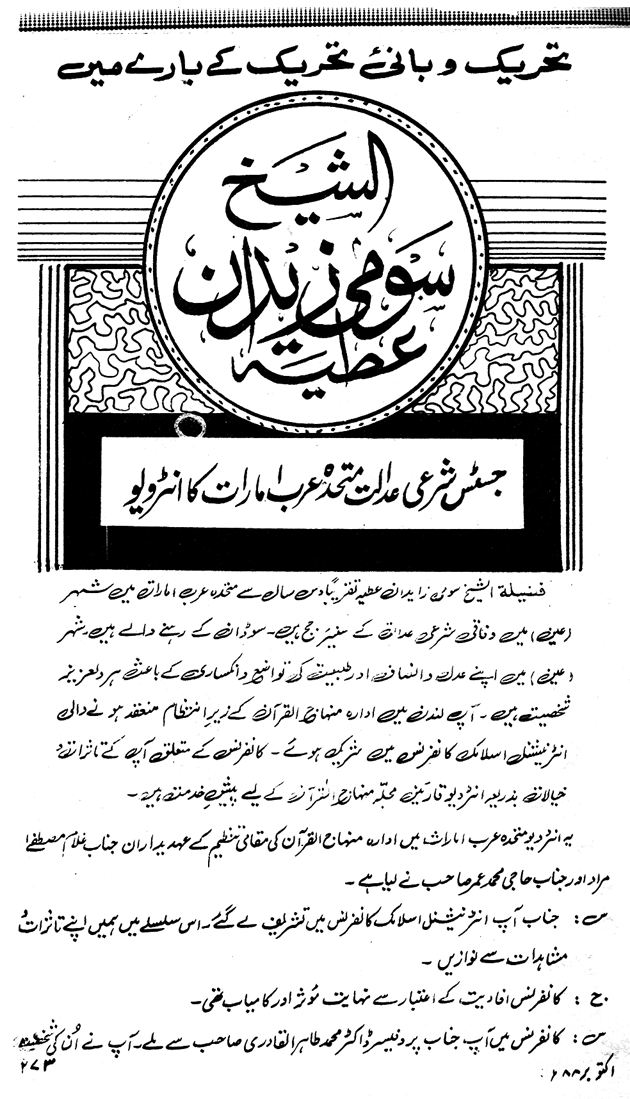 تحریک و بانئ تحریک کے بارے میں
الشیخ
سومی زیدان
عطیہ
جسٹس شرعی عدالت متحدہ عرب امارات کا انٹرویو
فضیلۃ الشیخ سومی زایدان عطیہ تقریباً دس سال سے متحدہ عرب امارات میں شہر
(عین) میں وفاقی شرعی عدالت کے سینئر جج ہیں۔ سوڈان کے رہنے والے ہیں۔ شہر
(عین) میں اپنے عدل و انصاف اور طبیعت کی تواضع و انکساری کے باعث ہر دلعزیز
شخصیت ہیں۔ آپ لندن میں ادارہ منہاج القرآن کے زیر انتظام منعقد ہونے والی
انٹرنیشنل اسلامک کانفرنس میں شریک ہوئے۔ کانفرنس کے متعلق آپ کے تاثرات و
خیالات بذریعہ انٹرویو قارئین مجلہ منہاج القرآن کے لیے پیش خدمت ہیں۔
یہ انٹرویو متحدہ عرب امارات میں ادارہ منہاج القرآن کی مقامی تنظیم کے عہدیداران جناب غلام مصطفےٰ
مراد اور جناب حاجی محمد عمر صاحب نے لیا ہے۔
س: جناب آپ انٹرنیشنل اسلامک کانفرنس میں تشریف لے گئے۔ اس سلسلے میں ہمیں اپنے تاثرات و
مشاہدات سے نوازیں۔
ج: کانفرنس افادیت کے اعتبار سے نہایت مؤثر اور کامیاب تھی۔
س: کانفرنس میں آپ جناب پروفیسر ڈاکٹر محمد طاہر القادری صاحب سے ملے۔ آپ نے اُن کی شخصیت
اکتوبر ۸۸ء
۲۷۳